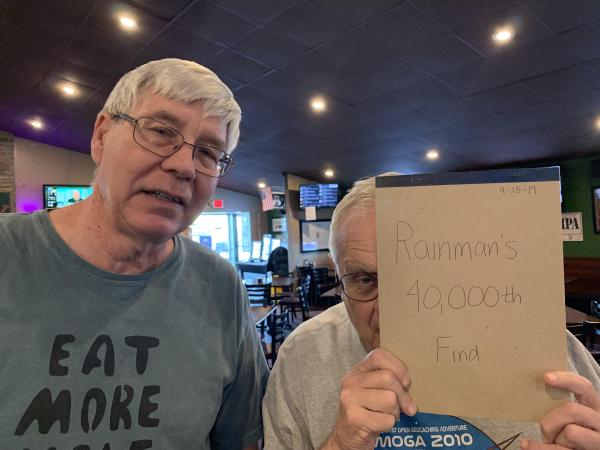 9-25-19
Rainman's
40,000th
Find
EAT
MORE
GEOCACHING ADVENTURE
MOGA 2010